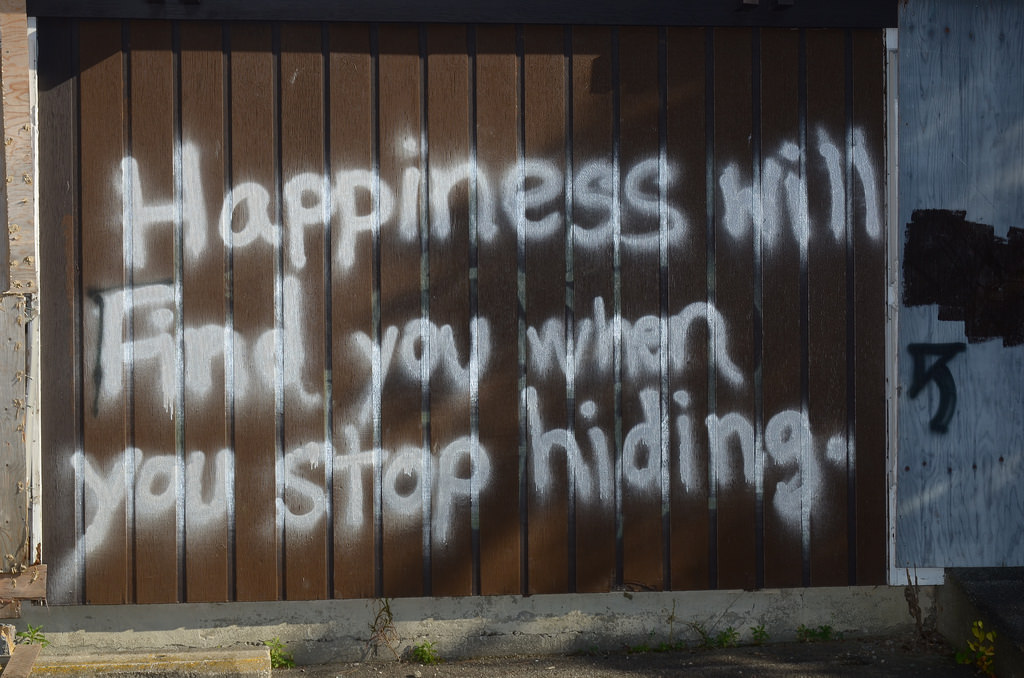 Happiness will
Find you when
you stop hiding.